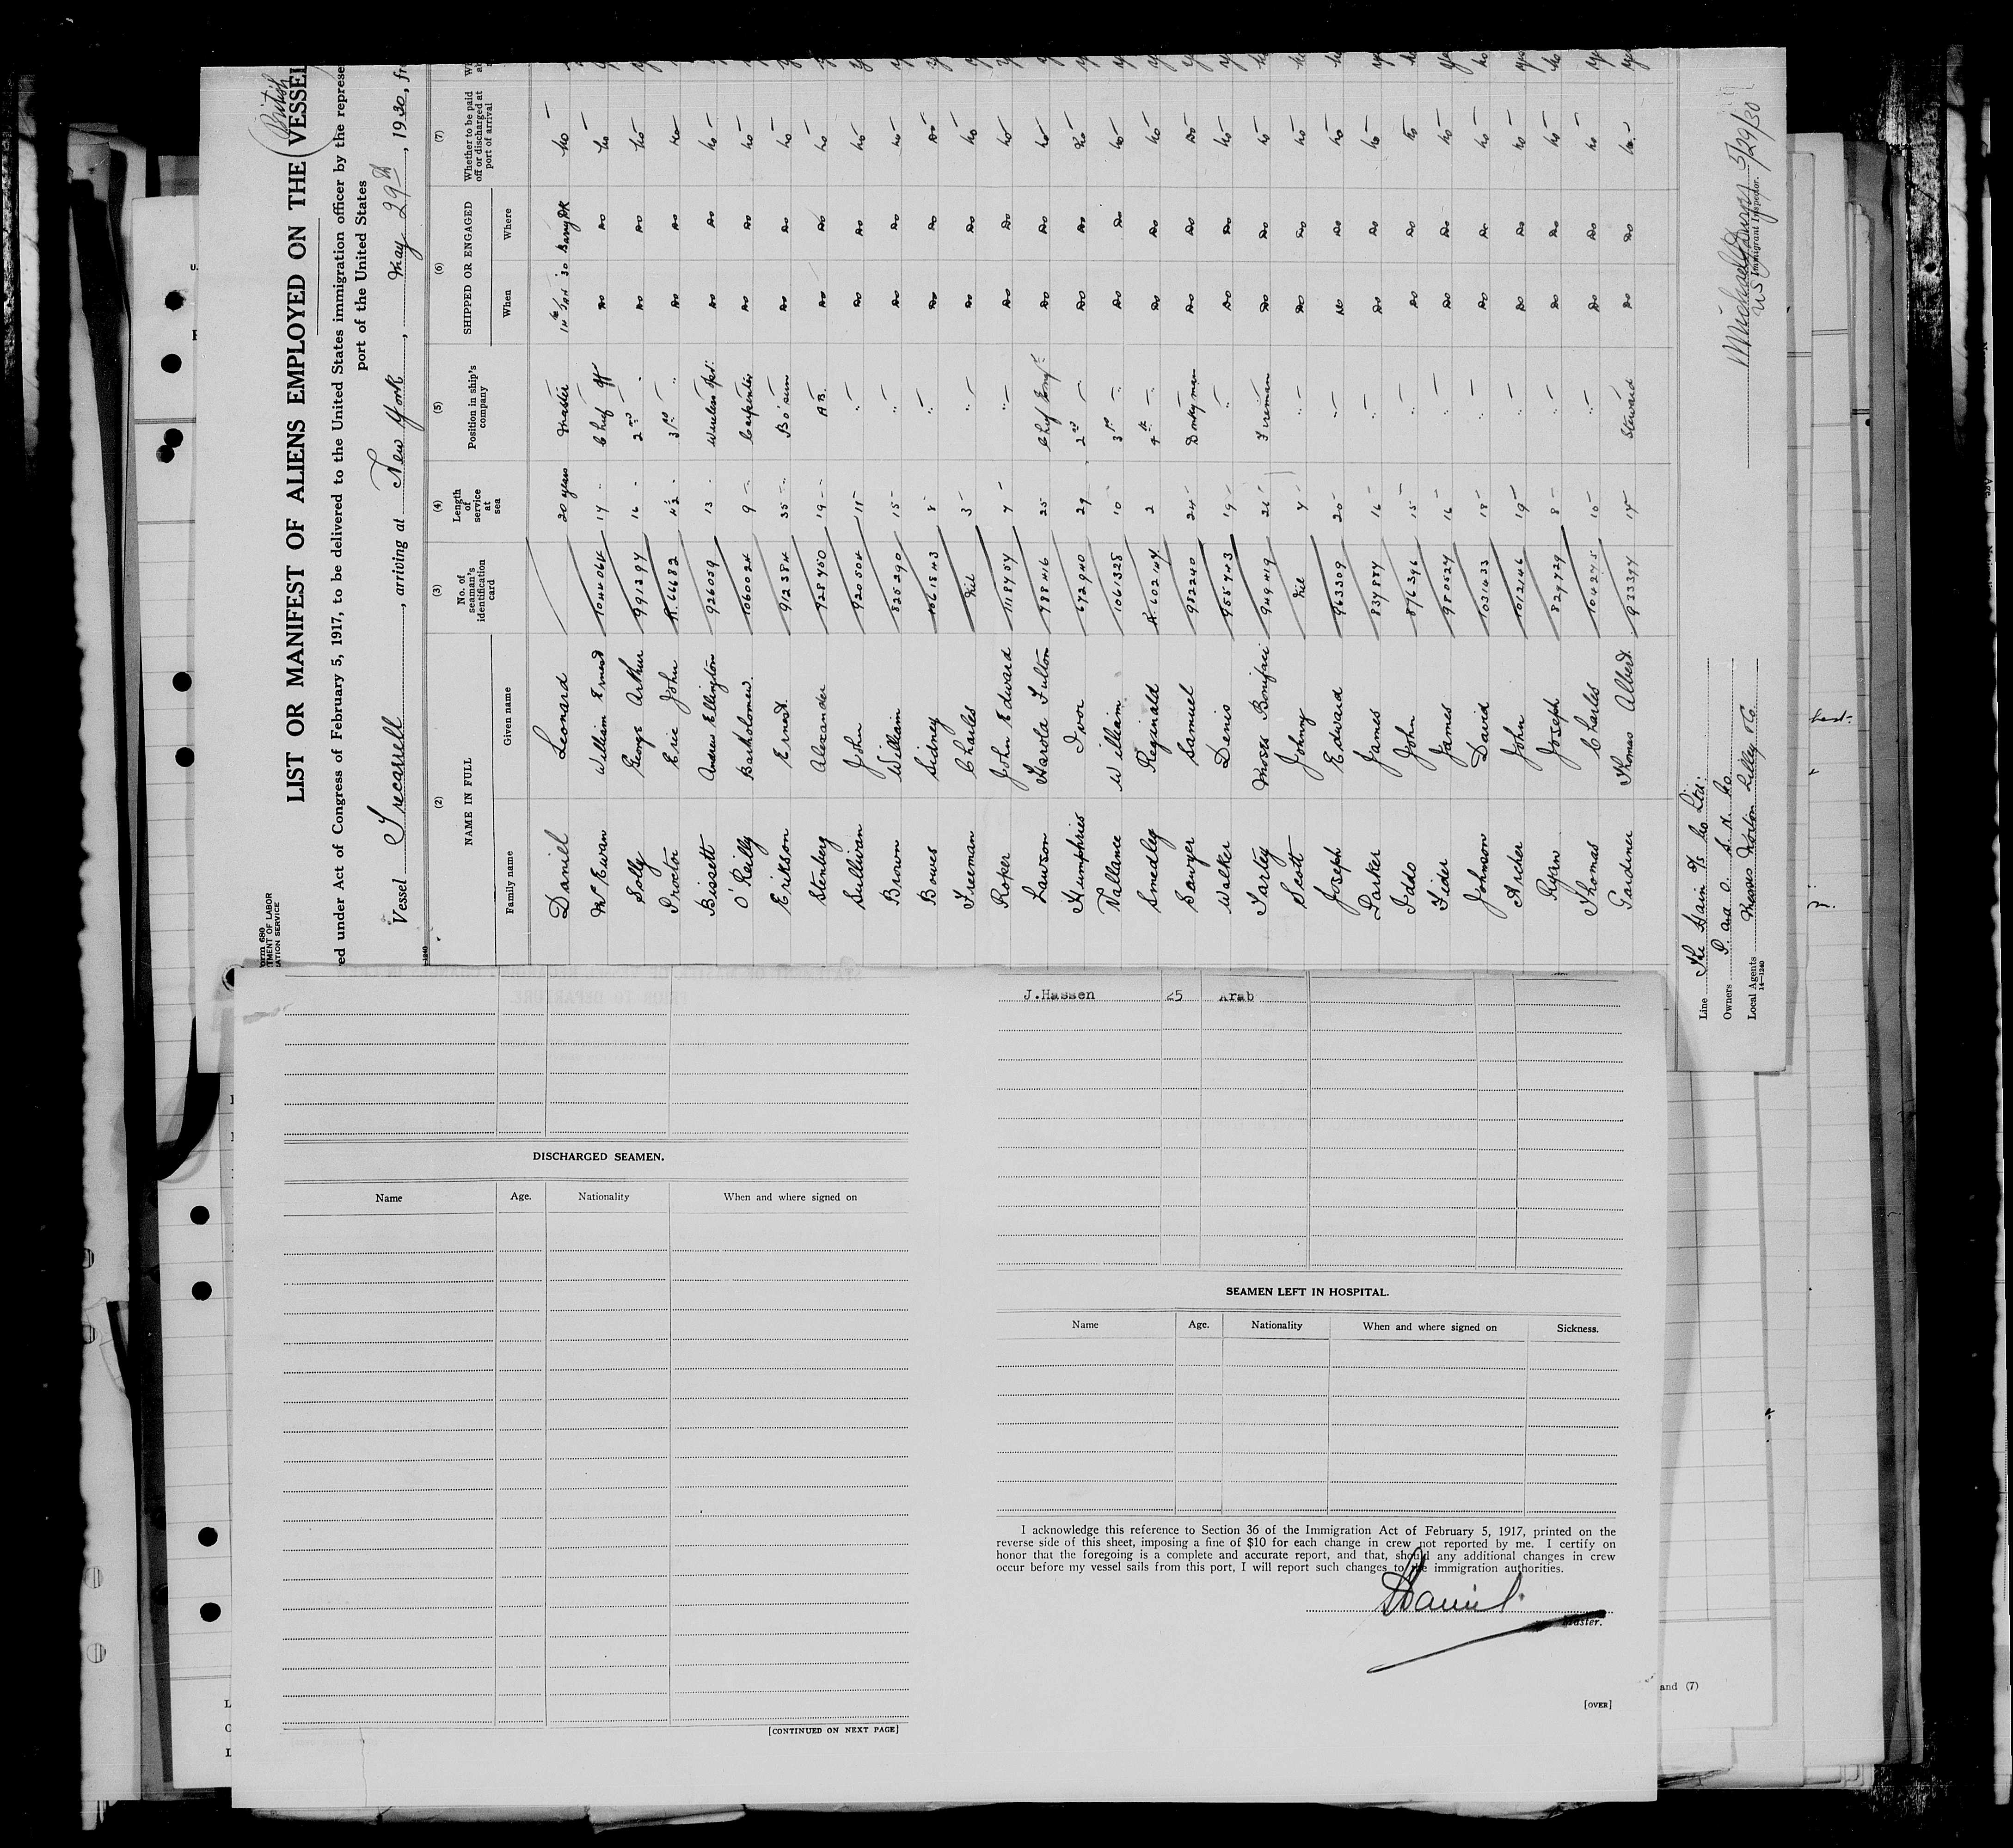 Form 680
LIST OR MANIFEST OF ALIENS EMPLOYED ON THE VESSEL
British
ed under Act of Congress of February 5, 1917, to be delivered to the United States immigration officer by the represe
port of the United States
Vessel Trecarrell, arriving at New York, May 29th, 1930, fr
(2) (3) (4) (5) (6) (7)
NAME IN FULL No. of seaman's identification card Length of service at sea Position in ship's company SHIPPED OR ENGAGED Whether to be paid off or discharged at port of arrival
Family name Given name When Where
Daniel Leonard 20 years Master 14th Jan 30 Barry Dk No
McEwan William Ernest 1044064 17 Chief Off Do Do No
Solly George Arthur 991297 16 2nd Do Do No
Proctor Eric John R.66682 4½ 3rd Do Do No
Bissett Andrew Ellington 926059 13 Wireless Opr. Do Do No
O'Reilly Bartholomew 1060024 9 Carpenter Do Do No
Erikson Ernest 912384 35 Bo'sun Do Do No
Stenberg Alexander 928750 19 A.B. Do Do No
Sullivan John 920504 11 " Do Do No
Brown William 825290 15 " Do Do No
Bowes Sidney 1061843 8 " Do Do No
Freeman Charles Nil 3 " Do Do No
Roper John Edward 1118757 7 " Do Do No
Lawson Harold Fulton 988416 25 Chief Eng. Do Do No
Humphries Ivor 672940 29 2nd Do Do No
Vallance William 1061328 10 3rd Do Do No
Smedley Reginald R.102147 2 4th Do Do No
Sawyer Samuel 982240 24 Donkeyman Do Do No
Walker Denis 955743 19 " Do Do No
Tartey Moses Bonifaci 949419 26 Fireman Do Do No
Scott Johny Nil 4 " Do Do No
Joseph Edward 963309 20 " Do Do No
Parker James 839887 16 " Do Do No
Iddo John 876396 15 " Do Do No
Fider James 980527 16 " Do Do No
Johnson David 1031433 18 " Do Do No
Archer John 1012146 19 " Do Do No
Joseph 829729 8 " Do Do No
Thomas Charles 1042475 10 " Do Do No
Gardiner Thomas Albert 933397 17 Steward Do Do No
Line The Hain S/S Co Ltd.
Owners P. and O. S.N. Co.
Local Agents Messrs Norton Lilley & Co.
14—1240
5/29/30
US Immigrant Inspector.
J.Hassen 25 Arab
DISCHARGED SEAMEN.
Name Age. Nationality When and where signed on
[CONTINUED ON NEXT PAGE]
SEAMEN LEFT IN HOSPITAL.
Name Age. Nationality When and where signed on Sickness.
I acknowledge this reference to Section 36 of the Immigration Act of February 5, 1917, printed on the
reverse side of this sheet, imposing a fine of $10 for each change in crew not reported by me. I certify on
honor that the foregoing is a complete and accurate report, and that, should any additional changes in crew
occur before my vessel sails from this port, I will report such changes to the immigration authorities.
LDaniel
Master.
[OVER]
and (7)